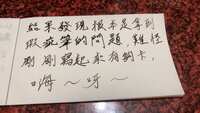 結果發現根本是拿到
瑕疵筆的問題,難怪
剛剛寫起來有夠卡,
嗨~呀~